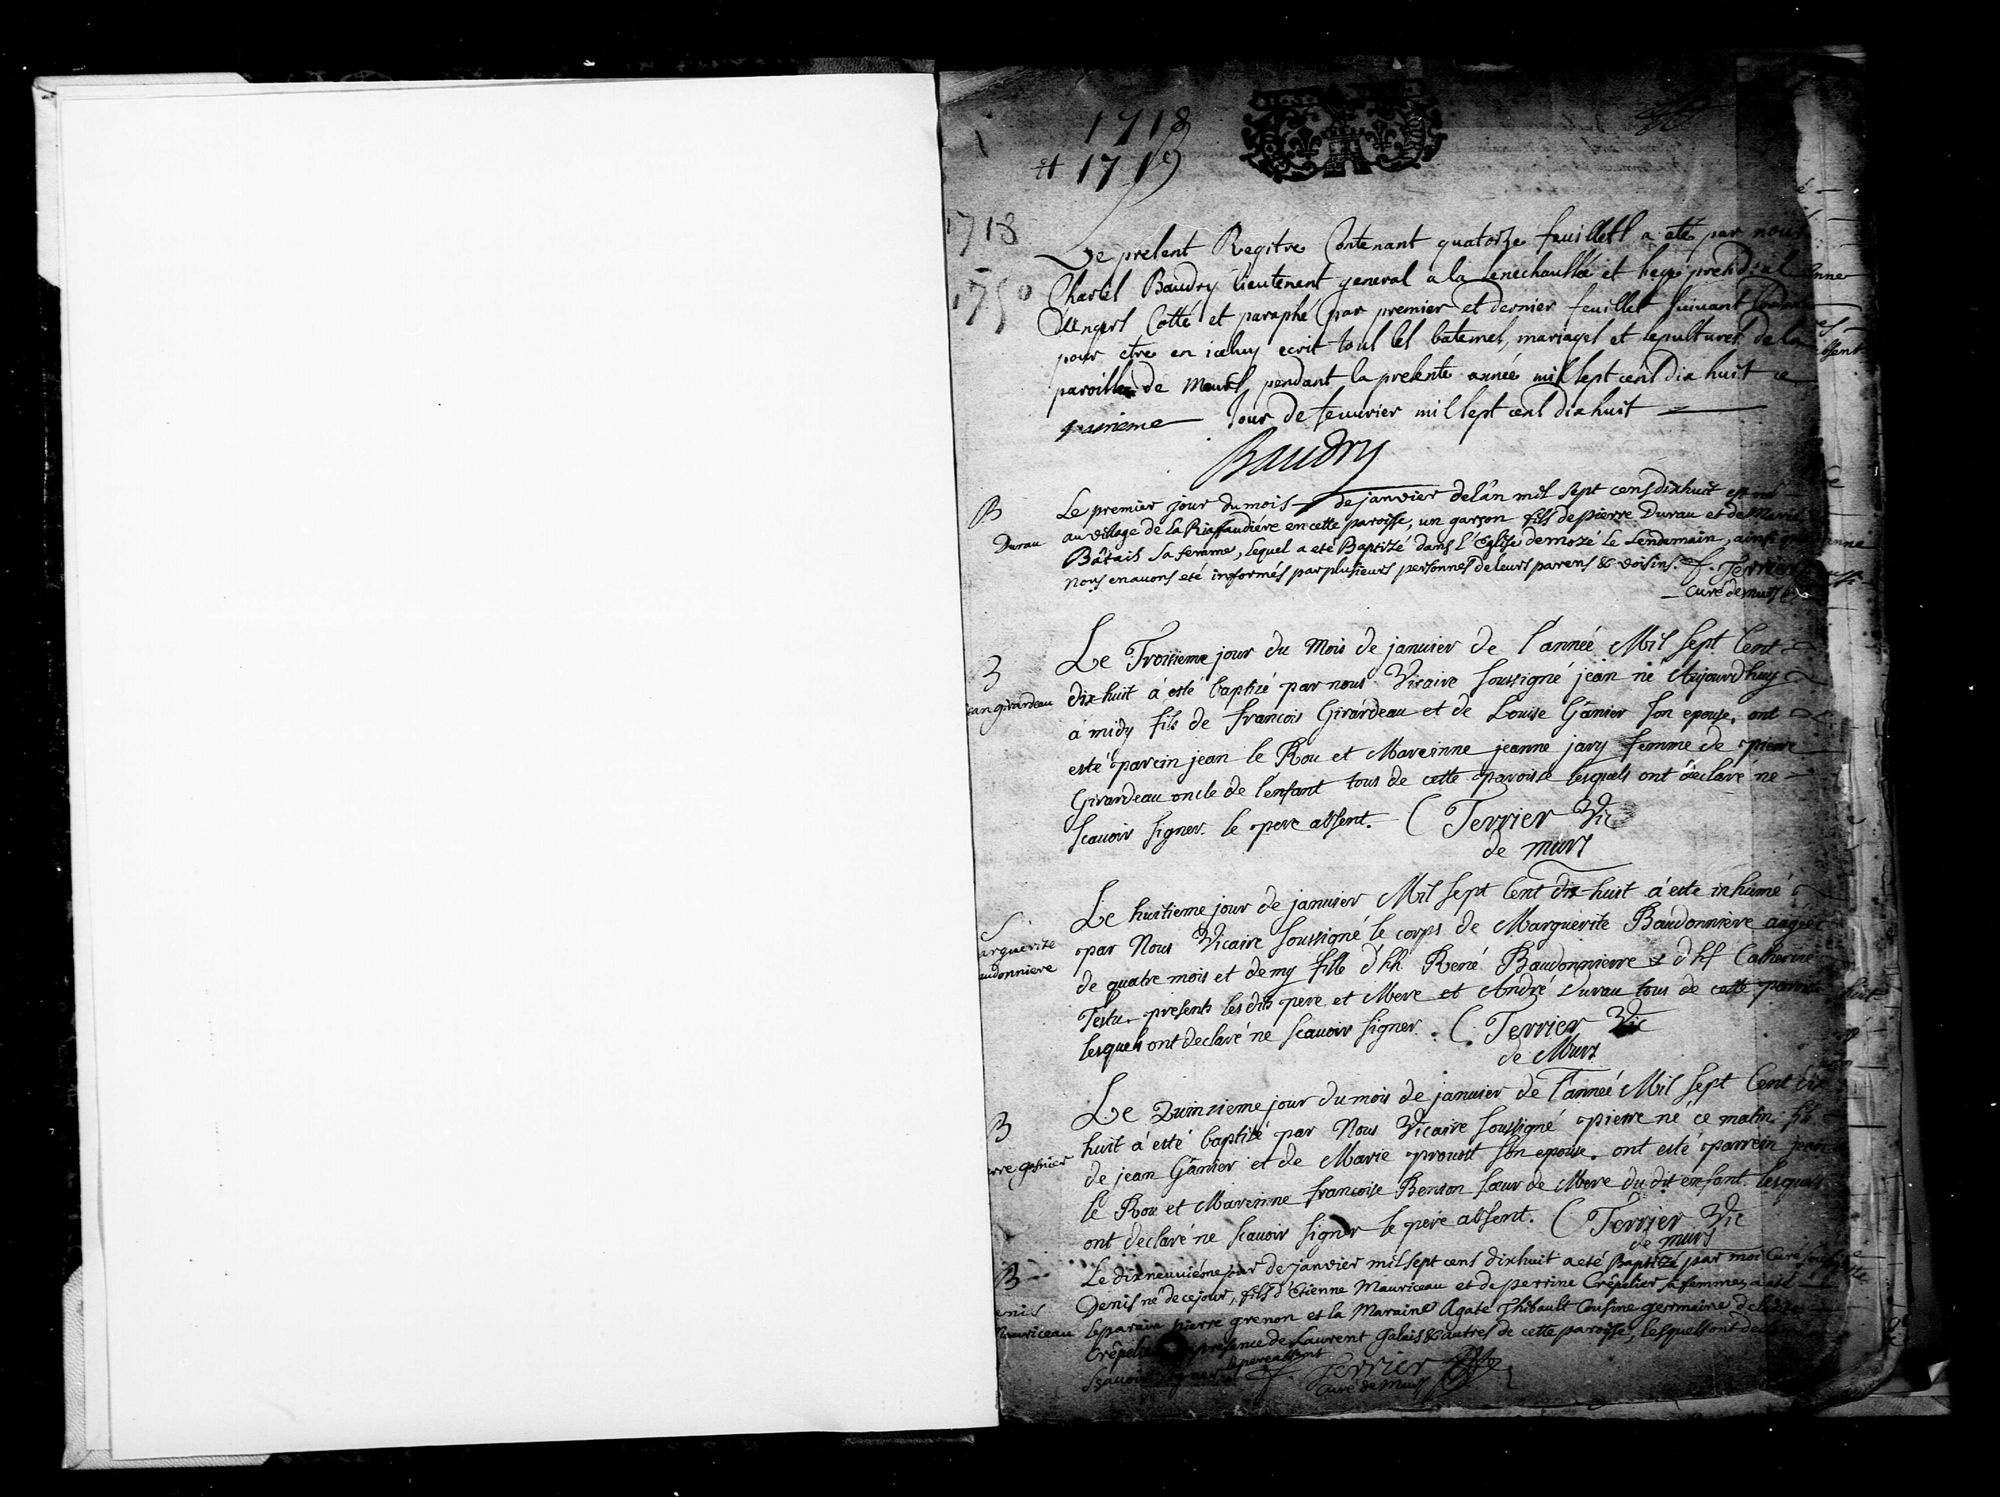 1718
et 1719
1718
1750
Le present Regitre Contenant quatorze feuillets a eté par nous
Charles Baudry lieutenent general a la senechaussée et siege presidial
d'Angers Cotté et paraphé par premier et dernier feuillet suivant
pour etre en iceluy ecrit tous les batemes, mariages et sepultures de la
paroisse de Meurs pendant la presente année mil sept cens dix huit ce
jour de feuurier mil sept cens dix huit
Baudry
B
Durau
Le premier jour du mois de janvier de l'an mil sept cens dixhuit est né
au village de la Riaffaudiére en cette paroisse, un garçon fils de pierre Durau et de Marie
Bâtais sa femme, lequel a eté Baptizé dans l'Eglise de mozé le Lendemain, ainsi que
nous en auons eté informés par plusieurs personnes de leurs parens & voisins. f. Terrier
curé de murs
B
jean girardeau
Le Troisieme jour du Mois de januier de l'année Mil sept Cent
dix-huit á esté baptizé par nous Vicaire soussigné jean né Aujourdhuy
á midy fils de françois Girardeau et de Louise Gânier son epouse, ont
esté parein jean le Rou et Mareinne jeanne jary femme de pierre
Girardeau oncle de l'enfant tous de cette paroisse lesquels ont déclaré ne
scauoir signer. le pere absent. C Terrier Vic
de murs
S
Marguerite
Baudonniere
Le huitieme jour de januier Mil sept Cent dix-huit á esté inhumé
par Nous Vicaire soussigné le corps de Marguerite Baudonniere aagée
de quatre mois et demy fille d'hh René Baudonnierre & d'hf Catherine
Testu presents les dits pere et Mere et André Durau tous de cette paroisse
lesquels ont declaré ne scauoir signer. C. Terrier Vic
de Murs
B
pierre ganier
Le Quinzieme jour du mois de januier de l'anneé Mil sept Cent dix
huit á esté baptizé par Nous Vicaire soussigné pierre né ce matin fils
de jean Gânier et de Marie prouost son epouse. ont esté parrein jean
le Rou et Mareinne françoise Benson sœur de Mere du dit enfant. lesquels
ont declaré ne scauoir signer le pere absent. C Terrier Vic
de murs
B
Denis
Mauriceau
Le dixneuviéme jour de janvier mil sept cens dixhuit a eté Baptizé par moi Curé soussigné
Denis né de ce jour, fils d'Etienne Mauriceau et de perrine Crêpelier sa femme, a eté
le parain pierre grenon et la Maraine Agate Thibault Cousine germaine de ladite
Crêpelier presence de Laurent Galais & autres de cette paroisse, lesquels ont declaré
sçavoir signer le pere absent f. Terrier
curé de Murs